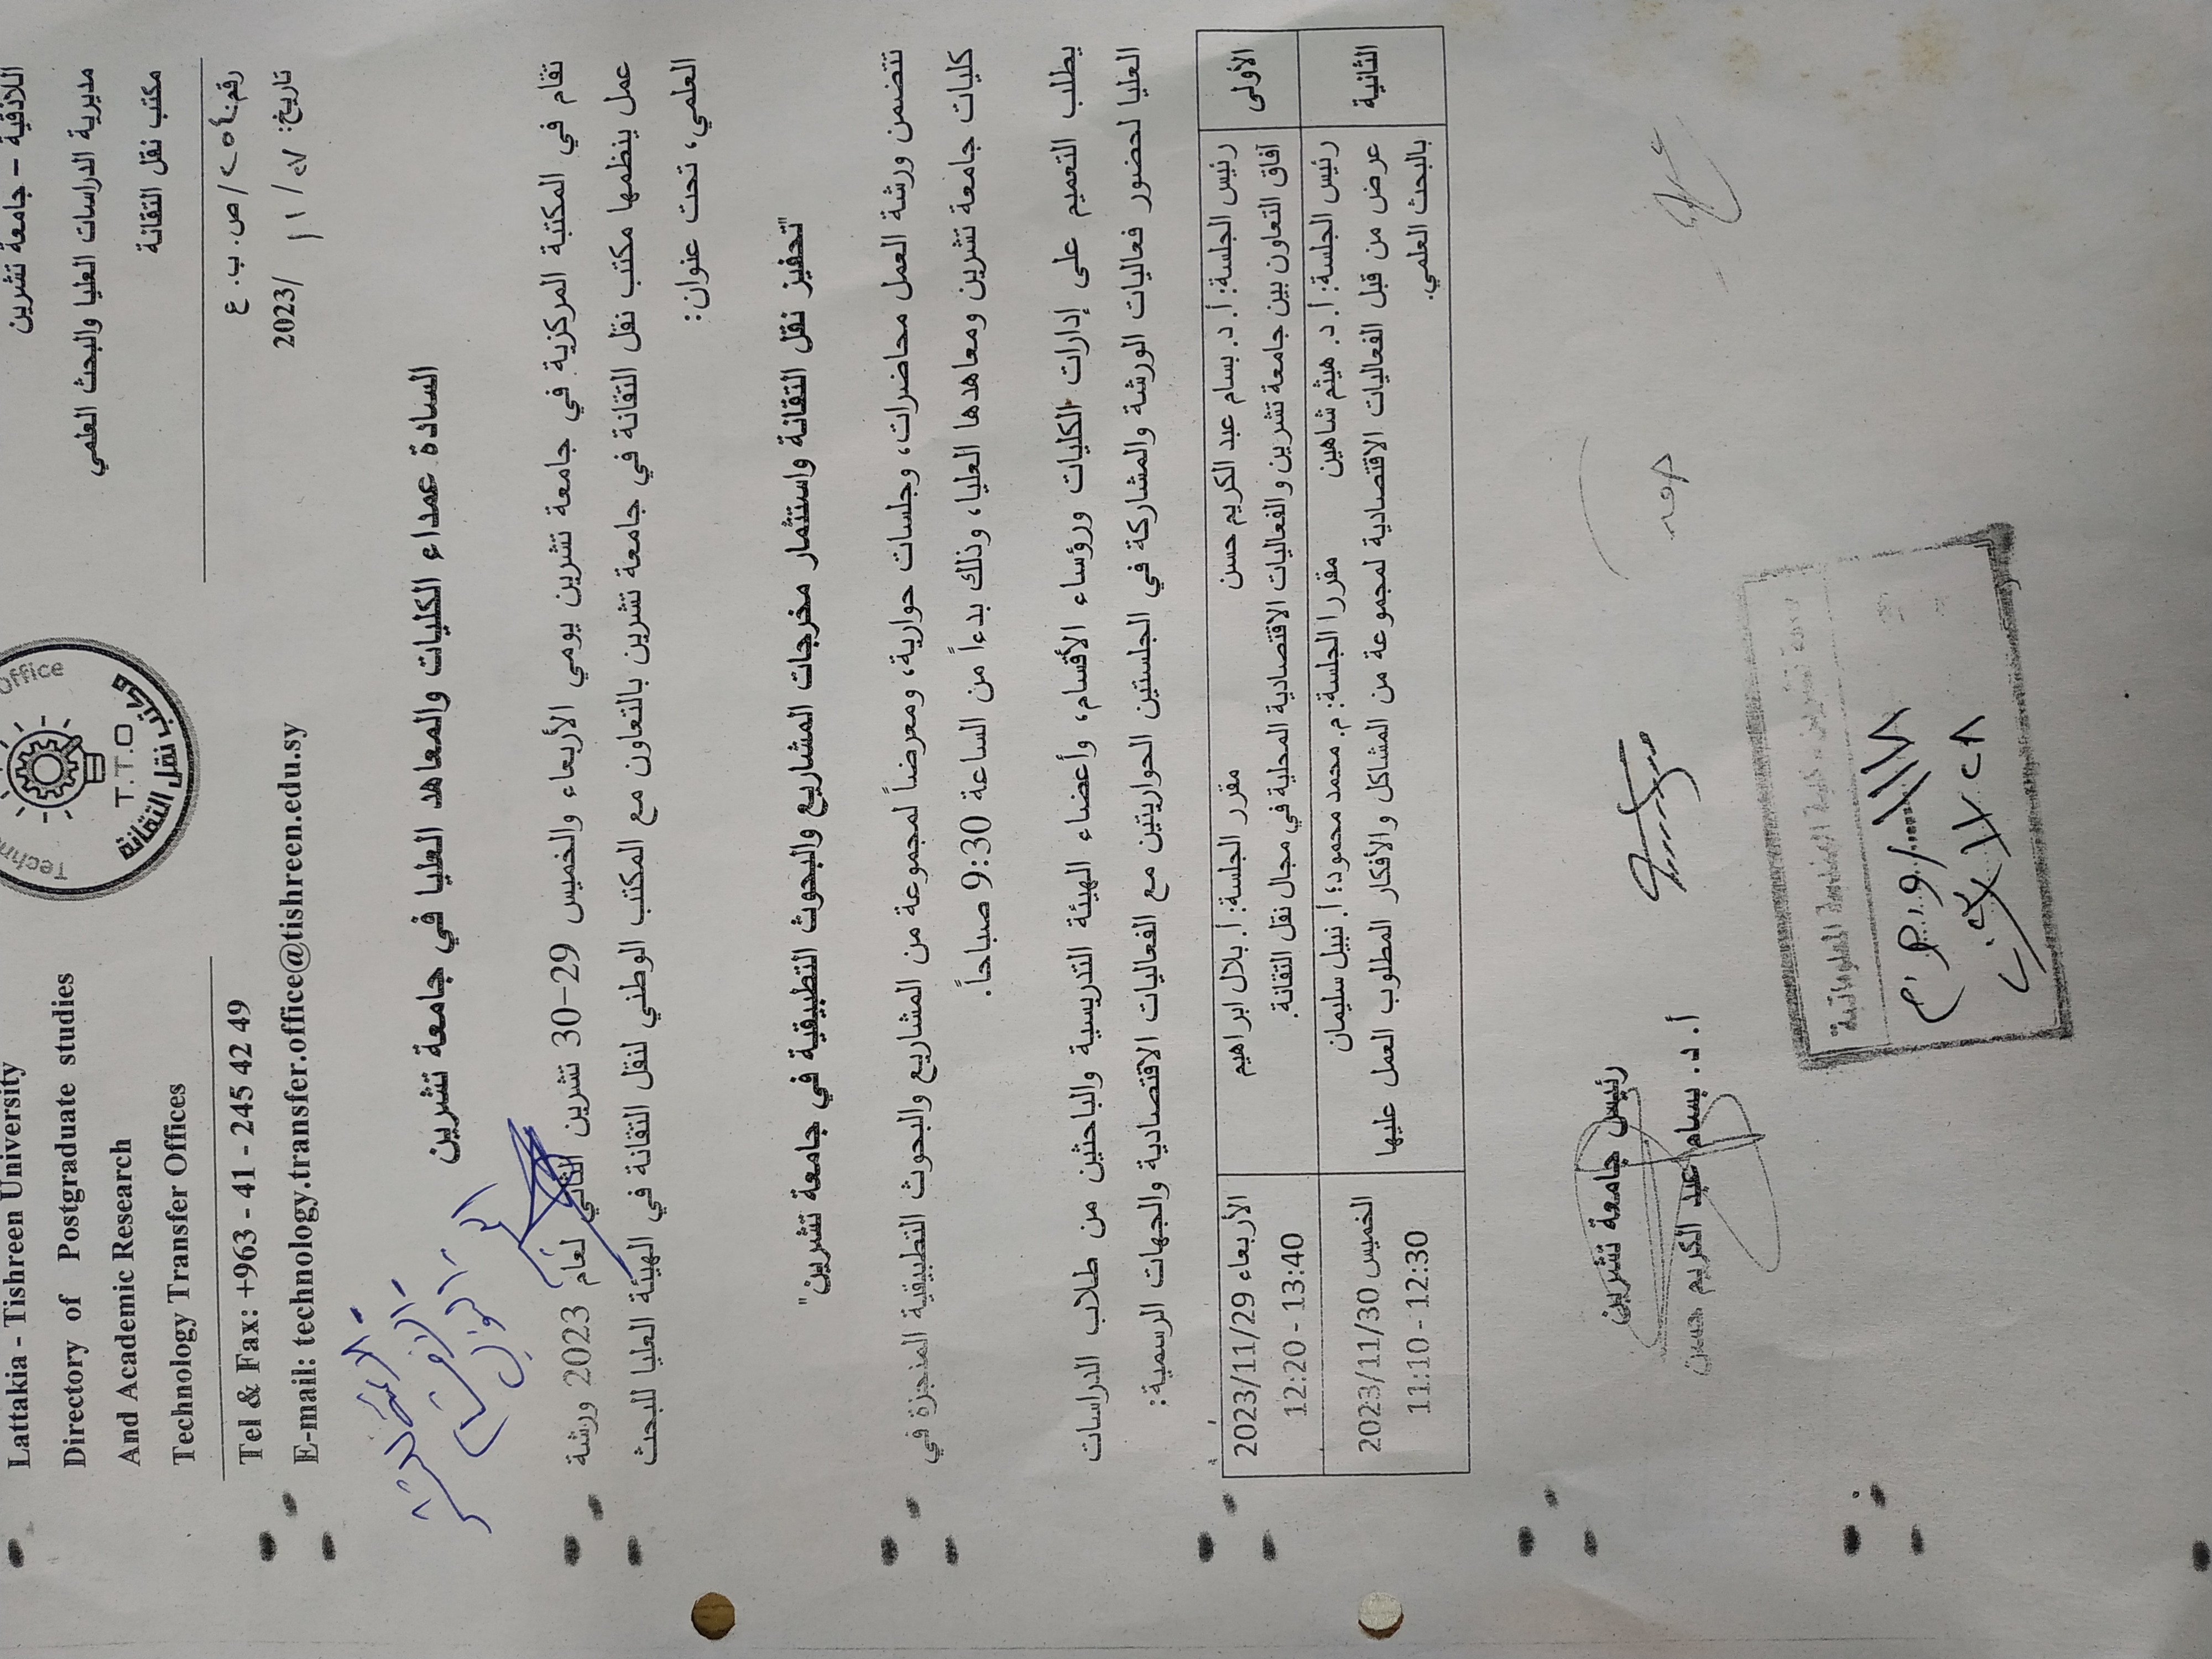 اللاذقية – جامعة تشرين
مديرية الدراسات العليا والبحث العلمي
مكتب نقل التقانة
رقم: /ص.ب.ع
تاريخ: / ١١ /2023
Office
T.T.O
مكتب نقل التقانة
Lattakia - Tishreen University
Directory of Postgraduate studies
And Academic Research
Technology Transfer Offices
Tel & Fax: +963 - 41 - 245 42 49
E-mail: technology.transfer.office@tishreen.edu.sy
السادة عمداء الكليات والمعاهد العليا في جامعة تشرين
تقام في المكتبة المركزية في جامعة تشرين يومي الأربعاء والخميس 29-30 تشرين الثاني لعام 2023 ورشة
عمل ينظمها مكتب نقل التقانة في جامعة تشرين بالتعاون مع المكتب الوطني لنقل التقانة في الهيئة العليا للبحث
العلمي، تحت عنوان:
"تحفيز نقل التقانة واستثمار مخرجات المشاريع والبحوث التطبيقية في جامعة تشرين"
تتضمن ورشة العمل محاضرات، وجلسات حوارية، ومعرضاً لمجموعة من المشاريع والبحوث التطبيقية المنجزة في
كليات جامعة تشرين ومعاهدها العليا، وذلك بدءاً من الساعة 9:30 صباحاً.
يطلب التعميم على إدارات الكليات ورؤساء الأقسام، وأعضاء الهيئة التدريسية والباحثين من طلاب الدراسات
العليا لحضور فعاليات الورشة والمشاركة في الجلستين الحواريتين مع الفعاليات الاقتصادية والجهات الرسمية:
الأولى
رئيس الجلسة: أ. د. بسام عبد الكريم حسن مقرر الجلسة: أ. بلال ابراهيم
آفاق التعاون بين جامعة تشرين والفعاليات الاقتصادية المحلية في مجال نقل التقانة.
الأربعاء 2023/11/29
12:20 - 13:40
الثانية
رئيس الجلسة: أ. د. هيثم شاهين مقررا الجلسة: م. محمد محمود؛ أ. نبيل سليمان
عرض من قبل الفعاليات الاقتصادية لمجموعة من المشاكل والأفكار المطلوب العمل عليها
بالبحث العلمي.
الخميس 2023/11/30
11:10 - 12:30
رئيس جامعة تشرين
أ. د. بسام عبد الكريم حسن
جامعة تشرين - كلية الهندسة المعلوماتية